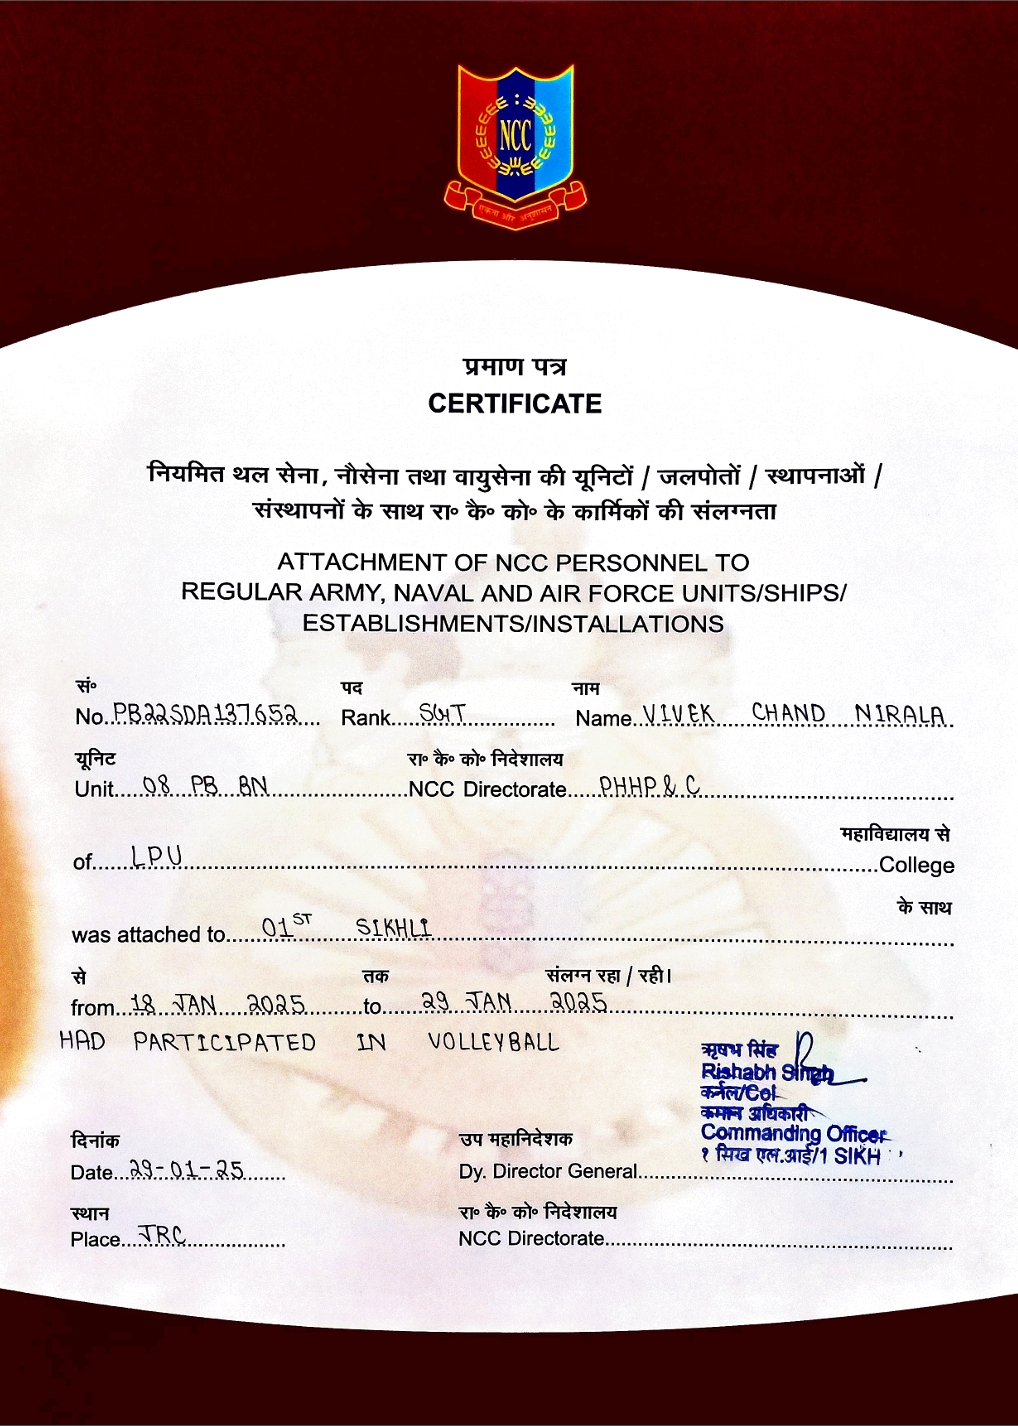 NCC
एकता और अनुशासन
प्रमाण पत्र
CERTIFICATE
नियमित थल सेना, नौसेना तथा वायुसेना की यूनिटों / जलपोतों / स्थापनाओं /
संस्थापनों के साथ रा॰ कै॰ को॰ के कार्मिकों की संलग्नता
ATTACHMENT OF NCC PERSONNEL TO
REGULAR ARMY, NAVAL AND AIR FORCE UNITS/SHIPS/
ESTABLISHMENTS/INSTALLATIONS
सं॰ पद नाम
No. PB22SDA137652 Rank SGT Name VIVEK CHAND NIRALA
यूनिट रा॰ कै॰ को॰ निदेशालय
Unit 08 PB BN NCC Directorate PHHP & C
महाविद्यालय से
of LPU College
के साथ
was attached to 01ST SIKHLI
से तक संलग्न रहा / रही।
from 18 JAN 2025 to 29 JAN 2025
HAD PARTICIPATED IN VOLLEYBALL
ऋषभ सिंह
Rishabh Singh
कर्नल/Col
कमान अधिकारी
Commanding Officer
१ सिख एल.आई/1 SIKH
दिनांक उप महानिदेशक
Date 29-01-25 Dy. Director General
स्थान रा॰ कै॰ को॰ निदेशालय
Place JRC NCC Directorate